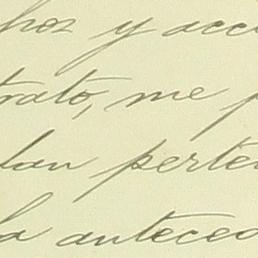 hos y acc
trato, me p
lan perte
la anteced